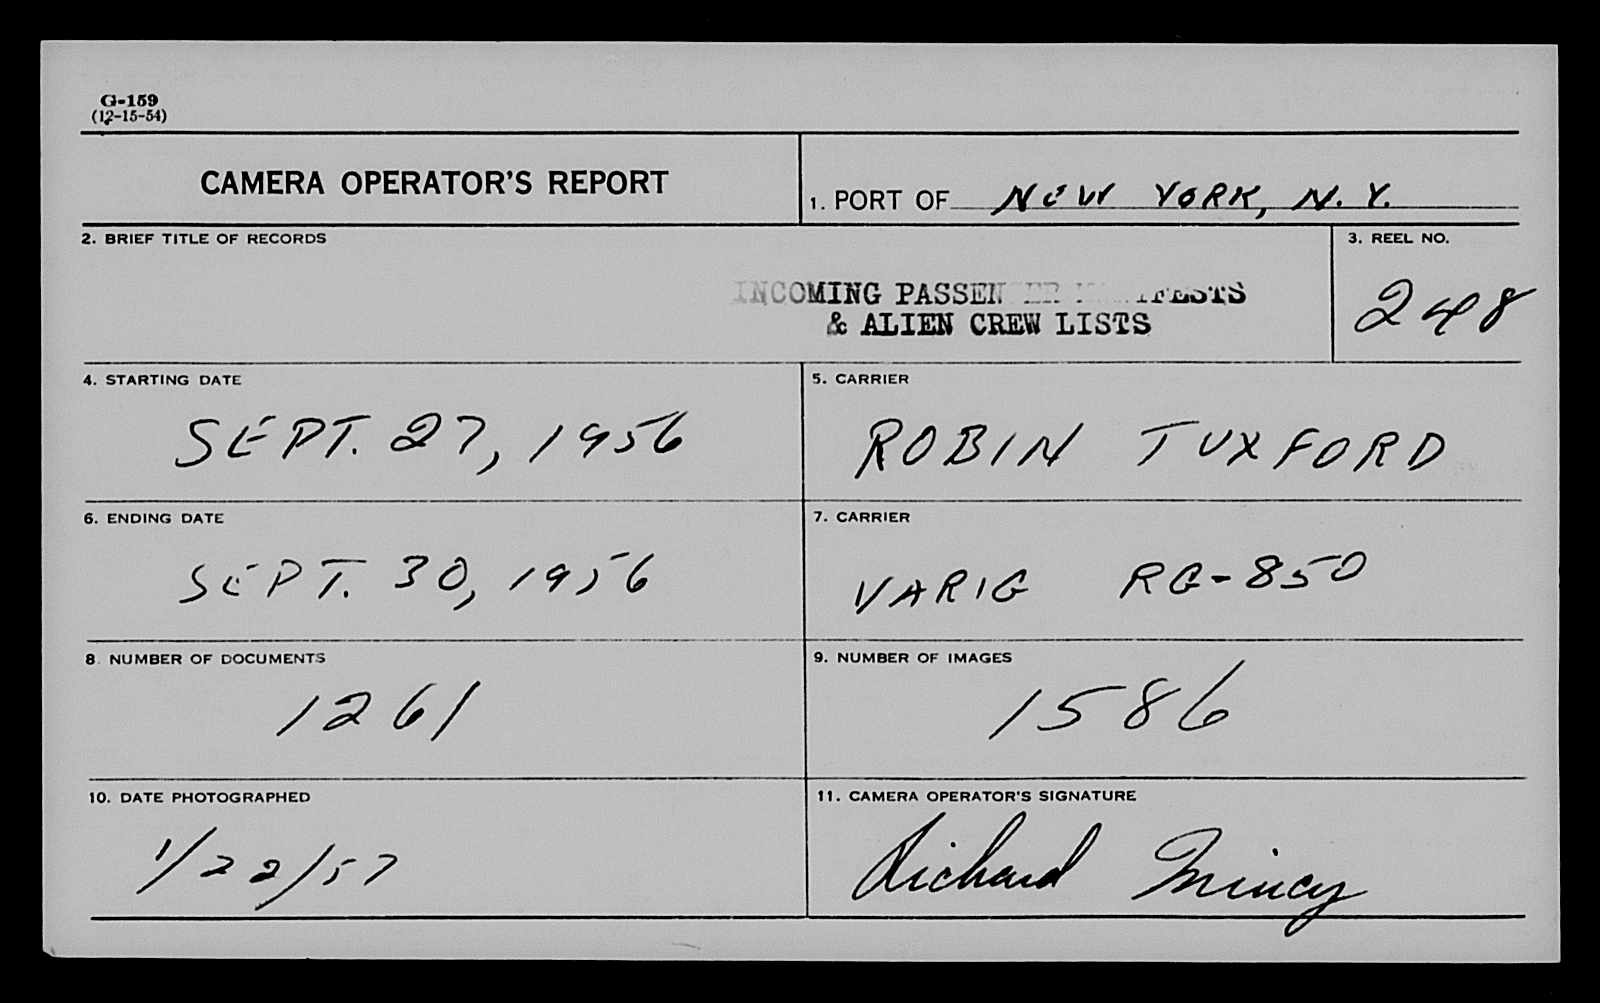 G-159
(12-15-54)
CAMERA OPERATOR'S REPORT
1. PORT OF NEW YORK, N.Y.
2. BRIEF TITLE OF RECORDS
3. REEL NO.
INCOMING PASSENGER MANIFESTS
& ALIEN CREW LISTS
248
4. STARTING DATE
5. CARRIER
SEPT. 27, 1956
ROBIN TUXFORD
6. ENDING DATE
7. CARRIER
SEPT. 30, 1956
VARIG RG-850
8. NUMBER OF DOCUMENTS
9. NUMBER OF IMAGES
1261
1586
10. DATE PHOTOGRAPHED
11. CAMERA OPERATOR'S SIGNATURE
1/22/57
Richard Mincy